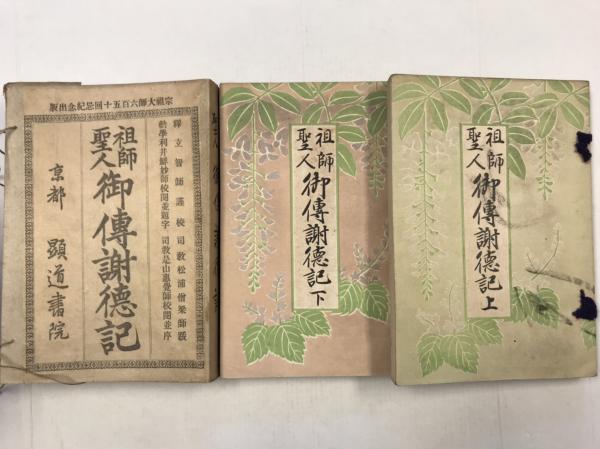 宗祖大師六百五十回忌紀念出版
釋立智師謹校 司教松浦僧梁師跋
勸學利井鮮妙師校閲並題字 司敎是山惠覺師校閲並序
祖師
聖人
御傳謝德記
京都 顯道書院
祖師
聖人
御傳謝德記下
祖師
聖人
御傳謝德記上